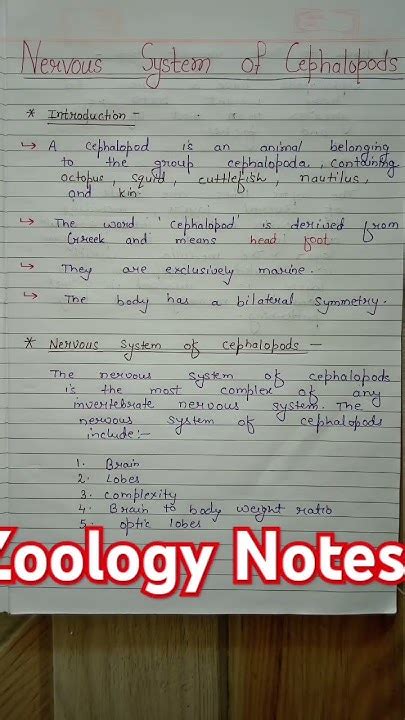 Nervous System of Cephalopods
* Introduction -
→ A cephalopod is an animal belonging
to the group cephalopoda, containing
octopus, squid, cuttlefish, nautilus,
and kin.
→ The word 'cephalopod' is derived from
Greek and means head foot.
→ They are exclusively marine.
→ The body has a bilateral symmetry.
* Nervous System of cephalopods -
The nervous system of cephalopods
is the most complex of any
invertebrate nervous system. The
nervous system of cephalopods
include:-
1. Brain
2. Lobes
3. complexity
4. Brain to body weight ratio
5. optic lobes
Zoology Notes